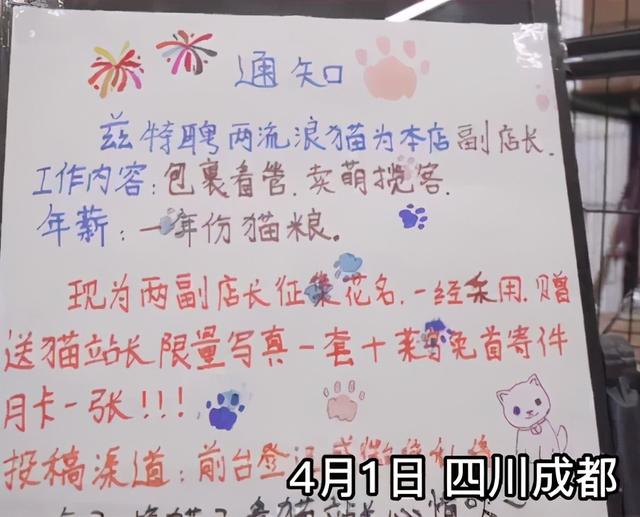 通知
兹特聘两流浪猫为本店副店长.
工作内容:包裹看管.卖萌揽客.
年薪:一年份猫粮。
现为两副店长征集花名.一经采用.赠
送猫站长限量写真一套+菜鸟免首寄件
月卡一张!!!
投稿渠道:前台登记
4月1日 四川成都